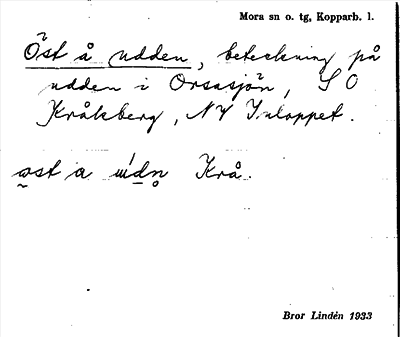 Mora sn o. tg, Kopparb. l.
Öst å udden, beteckning på
udden i Orsasjön, SO
Kråkberg, NV Inloppet.
Krå.
Bror Lindén 1933